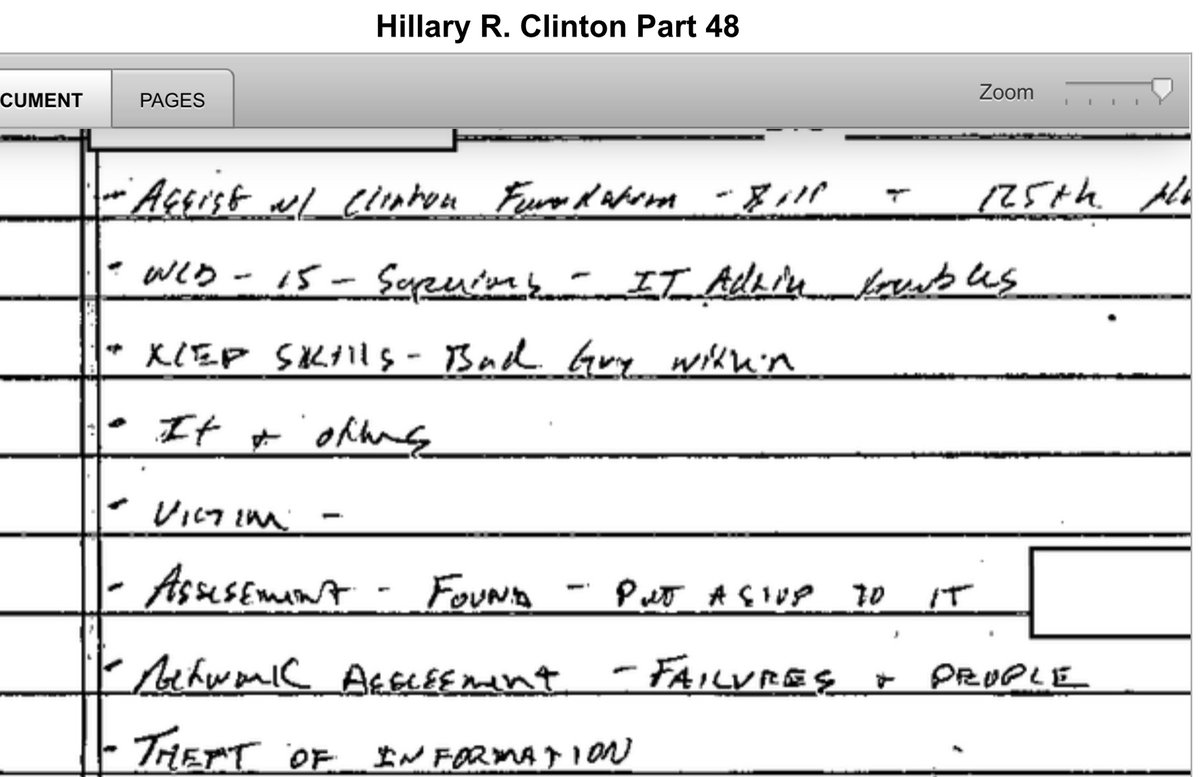 Hillary R. Clinton Part 48
CUMENT PAGES Zoom
- Assist w/ Clinton Foundation - Bill - 125th
- - 15 - - IT Admin troubles
- SKills - Bad Guy within
- It + others
- Victim -
- Assessment - Found - Put A STOP TO IT
- Network Assessment - FAILURES + PEOPLE
- THEFT OF INFORMATION